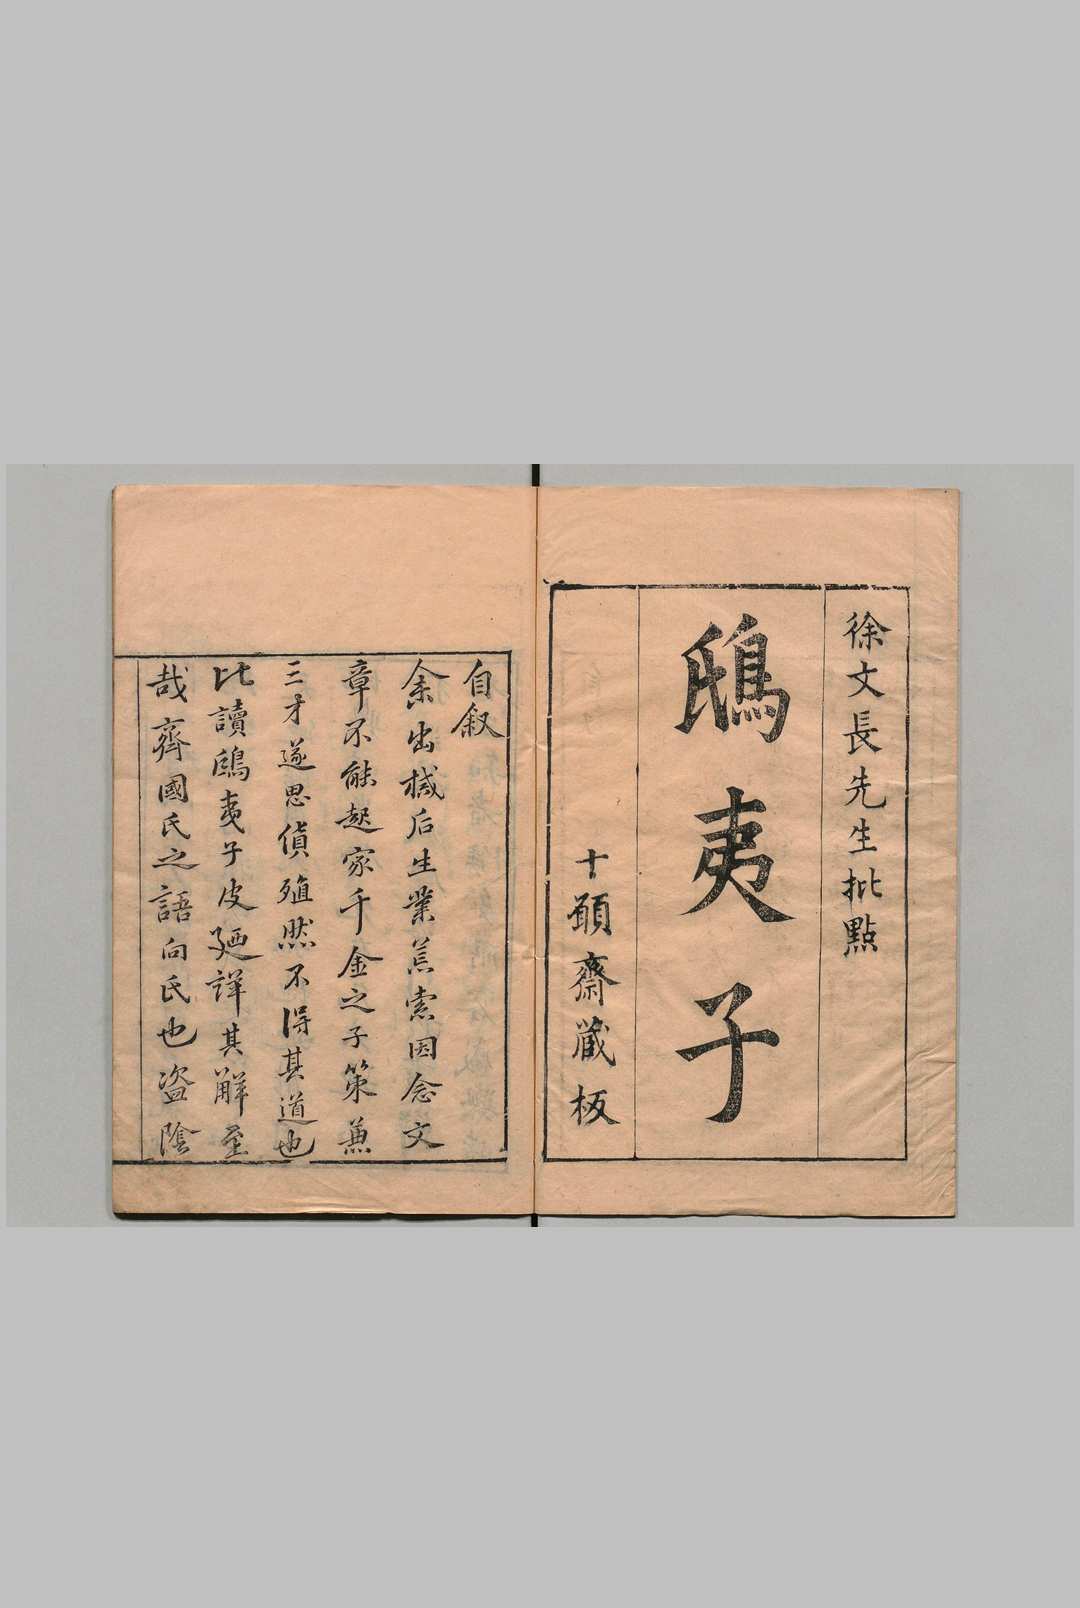 徐文長先生批點
鴟夷子
十願齋藏板
自叙
余出檻后生業荒索因念文
章不能起家千金之子策兼
三才遂思貨殖然不得其道也
比讀鴟夷子皮廼詳其解至
哉齊國氏之語向氏也盜陰